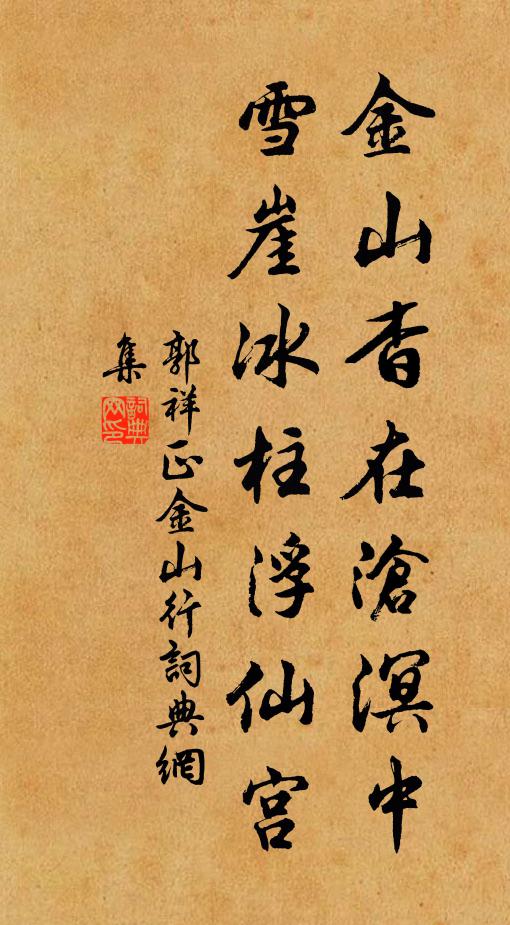 金山杳在滄溟中
雪崖冰柱浮仙宮
郭祥正金山行詞典網
集
詞典網印